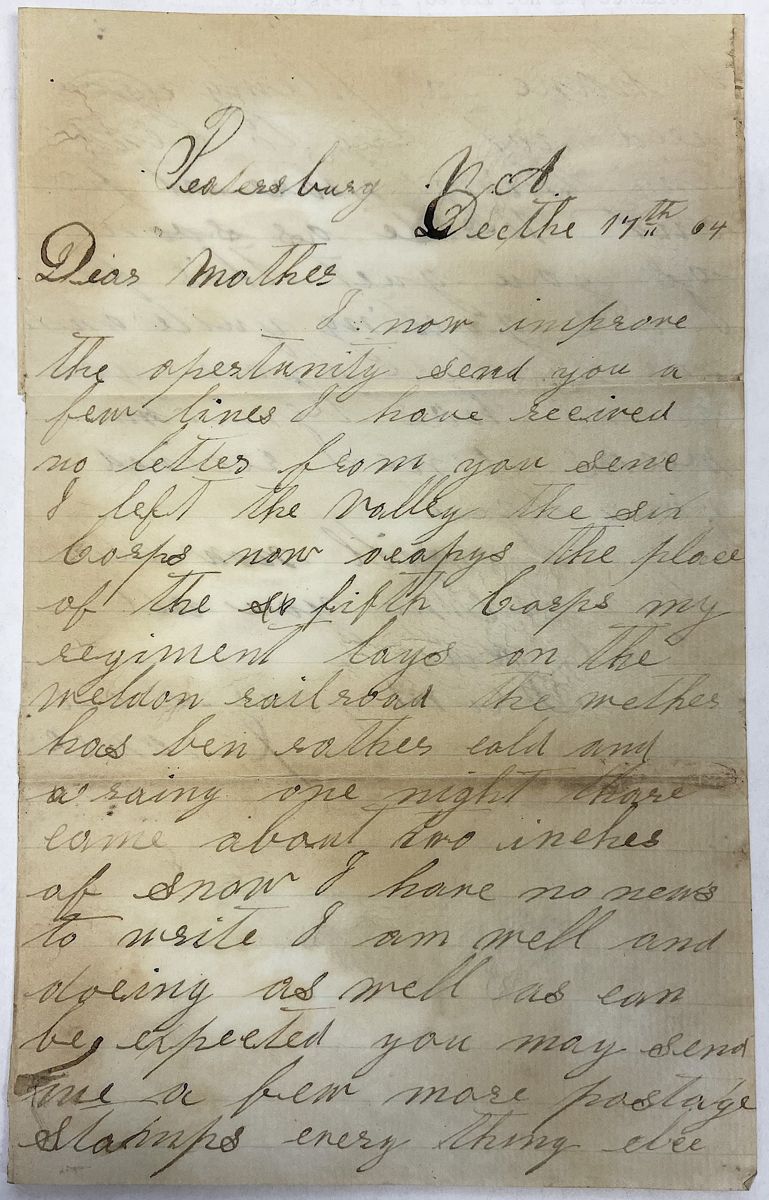 Peatersburg V.A.
Decthe 17th 64
Dear Mother
I now improve
the opertunity send you a
few lines I have received
no letter from you sence
I left the valley the six
Corps now ocapys the place
of the fifth Corps my
regiment lays on the
weldon railroad the wether
has ben rather cold and
a rainy one night thare
came about two inches
of snow I have no news
to write I am well and
doeing as well as can
be expected you may send
me a few more postage
stamps every thing elce